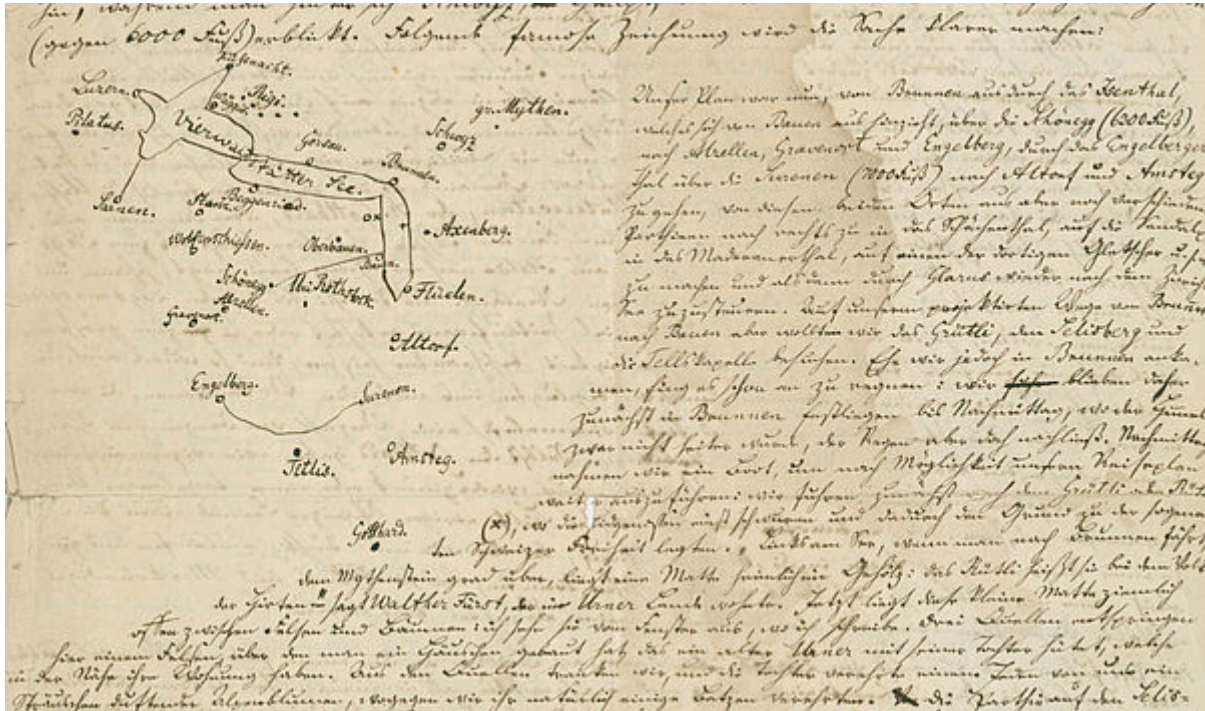 hin, während man hinter sich
(gegen 6000 Fuß) erblikt. Folgende famose Zeichnung wird die Sache klarer machen:
Küßnacht.
Luzern.
Rigi.
Pilatus.
gr. Mythen.
Schwyz
Gersau.
Brunnen.
Vierwaldstätter See.
Sarnen.
Stanz.
Beggenried.
Axenberg.
Wolfenschießen.
Oberbauen.
Bauen.
Schönegg
Uri Rothstock
Flüelen.
Altorf.
Engelberg.
Surenen.
Titlis.
Amsteg.
Gotthard.
Unser Plan war nun, von Brunnen aus durch das Isenthal,
welches sich von Bauen aus hinzieht, über die Schönegg (6300 Fuß),
nach Gravenort und Engelberg, durch das Engelberger
thal über die Surenen (7000 Fuß) nach Altorf und Amsteg
zu gehen, von diesen beiden Orten aus aber noch verschiedene
Parthieen nach rechts zu in das Schächenthal, auf die Sandalp
in das Maderanerthal, auf einen der dortigen Gletscher u.s.w.
zu machen und alsdann durch Glarus wieder nach dem Zürich
See zuzusteuern. Auf unserm projektirten Wege von Brunnen
nach Bauen aber wollten wir das Grütli, den Selisberg und
die Tellskapelle besuchen. Ehe wir jedoch in Brunnen anka-
men, fing es schon an zu regnen: wir blieben daher
zunächst in Brunnen festliegen bis Nachmittag, wo der Himmel
zwar nicht heiter wurde, der Regen aber doch nachließ. Nachmittags
nahmen wir ein Boot, um nach Möglichkeit unsern Reiseplan
weiter auszuführen: wir fuhren zunächst nach dem Grütli oder Rütli
(x), wo die Eidgenossen einst schwuren und dadurch den Grund zu der sogenann
ten Schweizer Freiheit legten. „Links am See, wenn man nach Brunnen fährt
dem Mythenstein grad über, liegt eine Matte heimlich im Gehölz: das Rütli heißt sie bei dem Volk
der Hirten" sagt Walther Fürst, der im Urner Lande wohnte. Jetzt liegt diese kleine Matte ziemlich
offen zwischen Felsen und Bäumen: ich sehe sie vom Fenster aus, wo ich schreibe. Drei Quellen entspringen
hier einem Felsen, über den man ein Häuschen gebaut hat das ein alter Urner mit seiner Tochter hütet, welche
in der Nähe ihre Wohnung haben. Aus den Quellen tranken wir, und die Tochter verehrte einem Jeden von uns ein
Sträuschen duftender Alpenblumen, wogegen wir ihr natürlich einige Batzen verehrten. die Parthie auf den Selis-